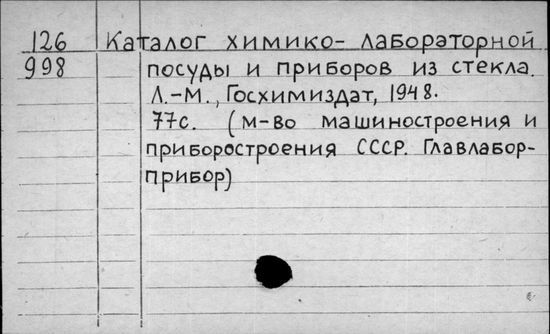 126 Каталог химико- лабораторной
998 посуды и приборов из стекла.
Л.-М., Госхимиздат, 1948.
77с. (м-во машиностроения и
приборостроения СССР. Главлабор-
прибор)